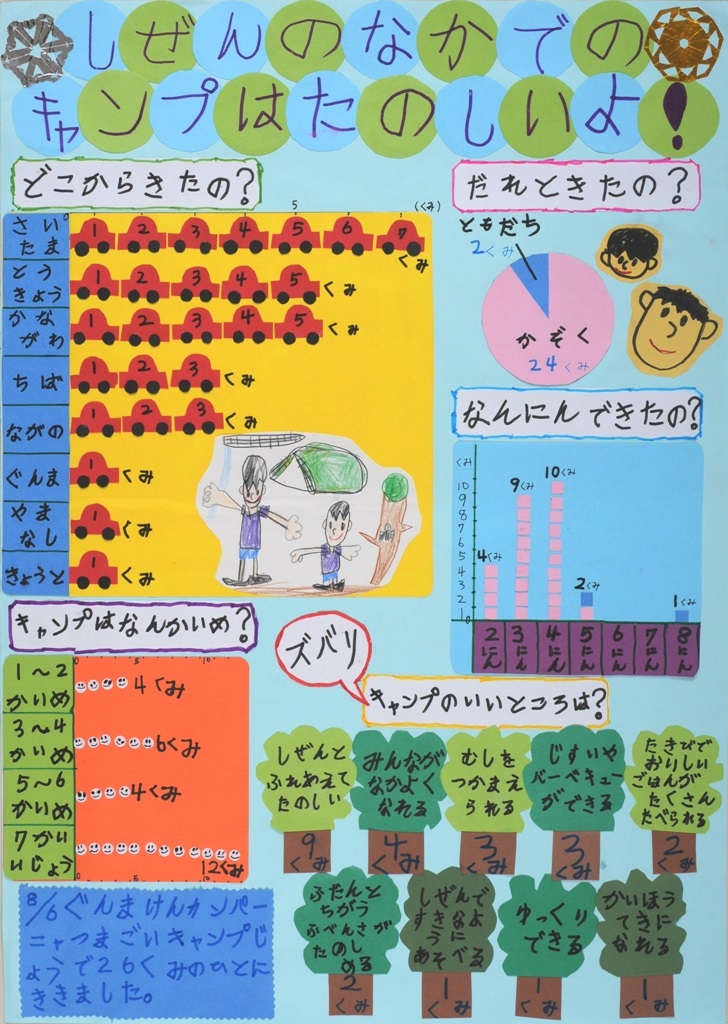 しぜんのなかでの
キャンプはたのしいよ!
どこからきたの?
0
5
(くみ)
さい
たま
1 2 3 4 5 6 7
くみ
とう
きょう
1 2 3 4 5 くみ
かな
がわ
1 2 3 4 5 くみ
ちば
1 2 3 くみ
ながの
1 2 3 くみ
ぐんま
1 くみ
やま
なし
1 くみ
きょうと
1 くみ
だれときたの?
ともだち
2くみ
かぞく
24くみ
なんにんできたの?
(くみ)
10
9
8
7
6
5
4
3
2
1
0
4くみ
9くみ
10くみ
2くみ
1くみ
2にん
3にん
4にん
5にん
6にん
7にん
8にん
キャンプはなんかいめ?
0 5 10
1〜2
かいめ
4くみ
3〜4
かいめ
6くみ
5〜6
かいめ
4くみ
7かい
いじょう
12くみ
0 5 10
8/6ぐんまけんカンパー
ニャつまごいキャンプじ
ょうで26くみのひとに
ききました。
ズバリ
キャンプのいいところは?
しぜんと
ふれあえて
たのしい
9
くみ
みんなが
なかよく
なれる
4
くみ
むしを
つかまえ
られる
3
くみ
じすいや
バーベキュー
ができる
3
くみ
たきびで
おいしい
ごはんが
たくさん
たべられる
2
くみ
ふだんと
ちがう
ふべんさが
たのし
める
2
くみ
しぜんで
すきなよ
うに
あそべる
1
くみ
ゆっくり
できる
1
くみ
かいほう
てきに
なれる
1
くみ